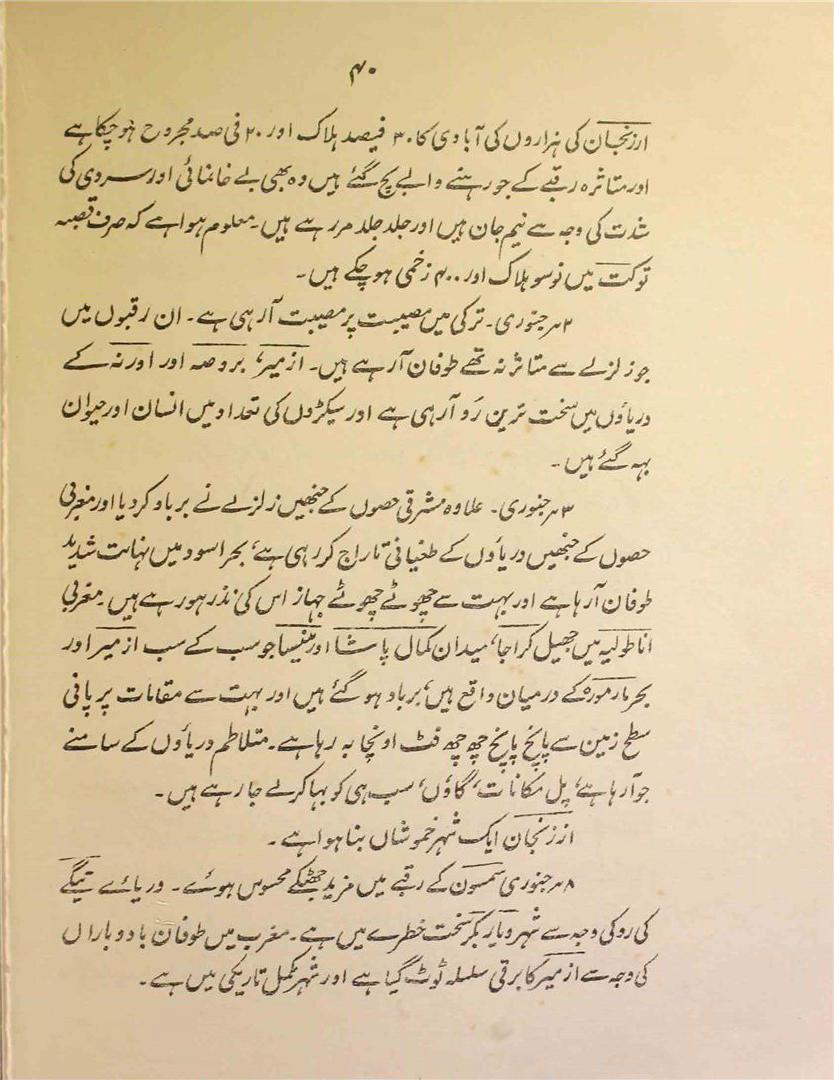 ۴۰
ارزنجان کی ہزاروں کی آبادی کا ۳۰ فیصد ہلاک اور ۲۰ فی صد مجروح ہو چکا ہے
اور متاثرہ رقبے کے جو رہنے والے بچ گئے ہیں وہ بھی بے خانمائی اور سردی کی
شدت کی وجہ سے نیم جان ہیں اور جلد جلد مر رہے ہیں۔ معلوم ہوا ہے کہ صرف قصبہ
توکت میں نو سو ہلاک اور ۴۰۰ زخمی ہو چکے ہیں۔
۲ ؍ جنوری۔ ترکی میں مصیبت پر مصیبت آ رہی ہے۔ ان رقبوں میں
جو زلزلے سے متاثر نہ تھے طوفان آ رہے ہیں۔ ازمیر، بروصہ اور اورنہ کے
دریاؤں میں سخت ترین رَو آ رہی ہے اور سیکڑوں کی تعداد میں انسان اور حیوان
بہہ گئے ہیں۔
۳ ؍ جنوری۔ علاوہ مشرقی حصوں کے جنھیں زلزلے نے برباد کر دیا اور مغربی
حصوں کے جنھیں دریاؤں کے طغیانی تاراج کر رہی ہے، بحر اسود میں نہایت شدید
طوفان آ رہا ہے اور بہت سے چھوٹے چھوٹے جہاز اس کی نذر ہو رہے ہیں۔ مغربی
اناطولیہ میں جھیل کراجا، میدان کمال پاشا اور منیسا جو سب کے سب ازمیر اور
بحر مارمورہ کے درمیان واقع ہیں، برباد ہو گئے ہیں اور بہت سے مقامات پر پانی
سطح زمین سے پانچ پانچ چھ چھ فٹ اونچا بہ رہا ہے۔ متلاطم دریاؤں کے سامنے
جو آ رہا ہے، پل مکانات، گاؤں، سب ہی کو بہا کر لے جا رہے ہیں۔
ارزنجان ایک شہر خموشاں بنا ہوا ہے۔
۸ ؍ جنوری سمسون کے رقبے میں مزید جھٹکے محسوس ہوئے۔ دریائے
کی رو کی وجہ سے شہر دیار بکر سخت خطرے میں ہے۔ مغرب میں طوفان باد و باراں
کی وجہ سے ازمیر کا برقی سلسلہ ٹوٹ گیا ہے اور شہر مکمل تاریکی میں ہے۔